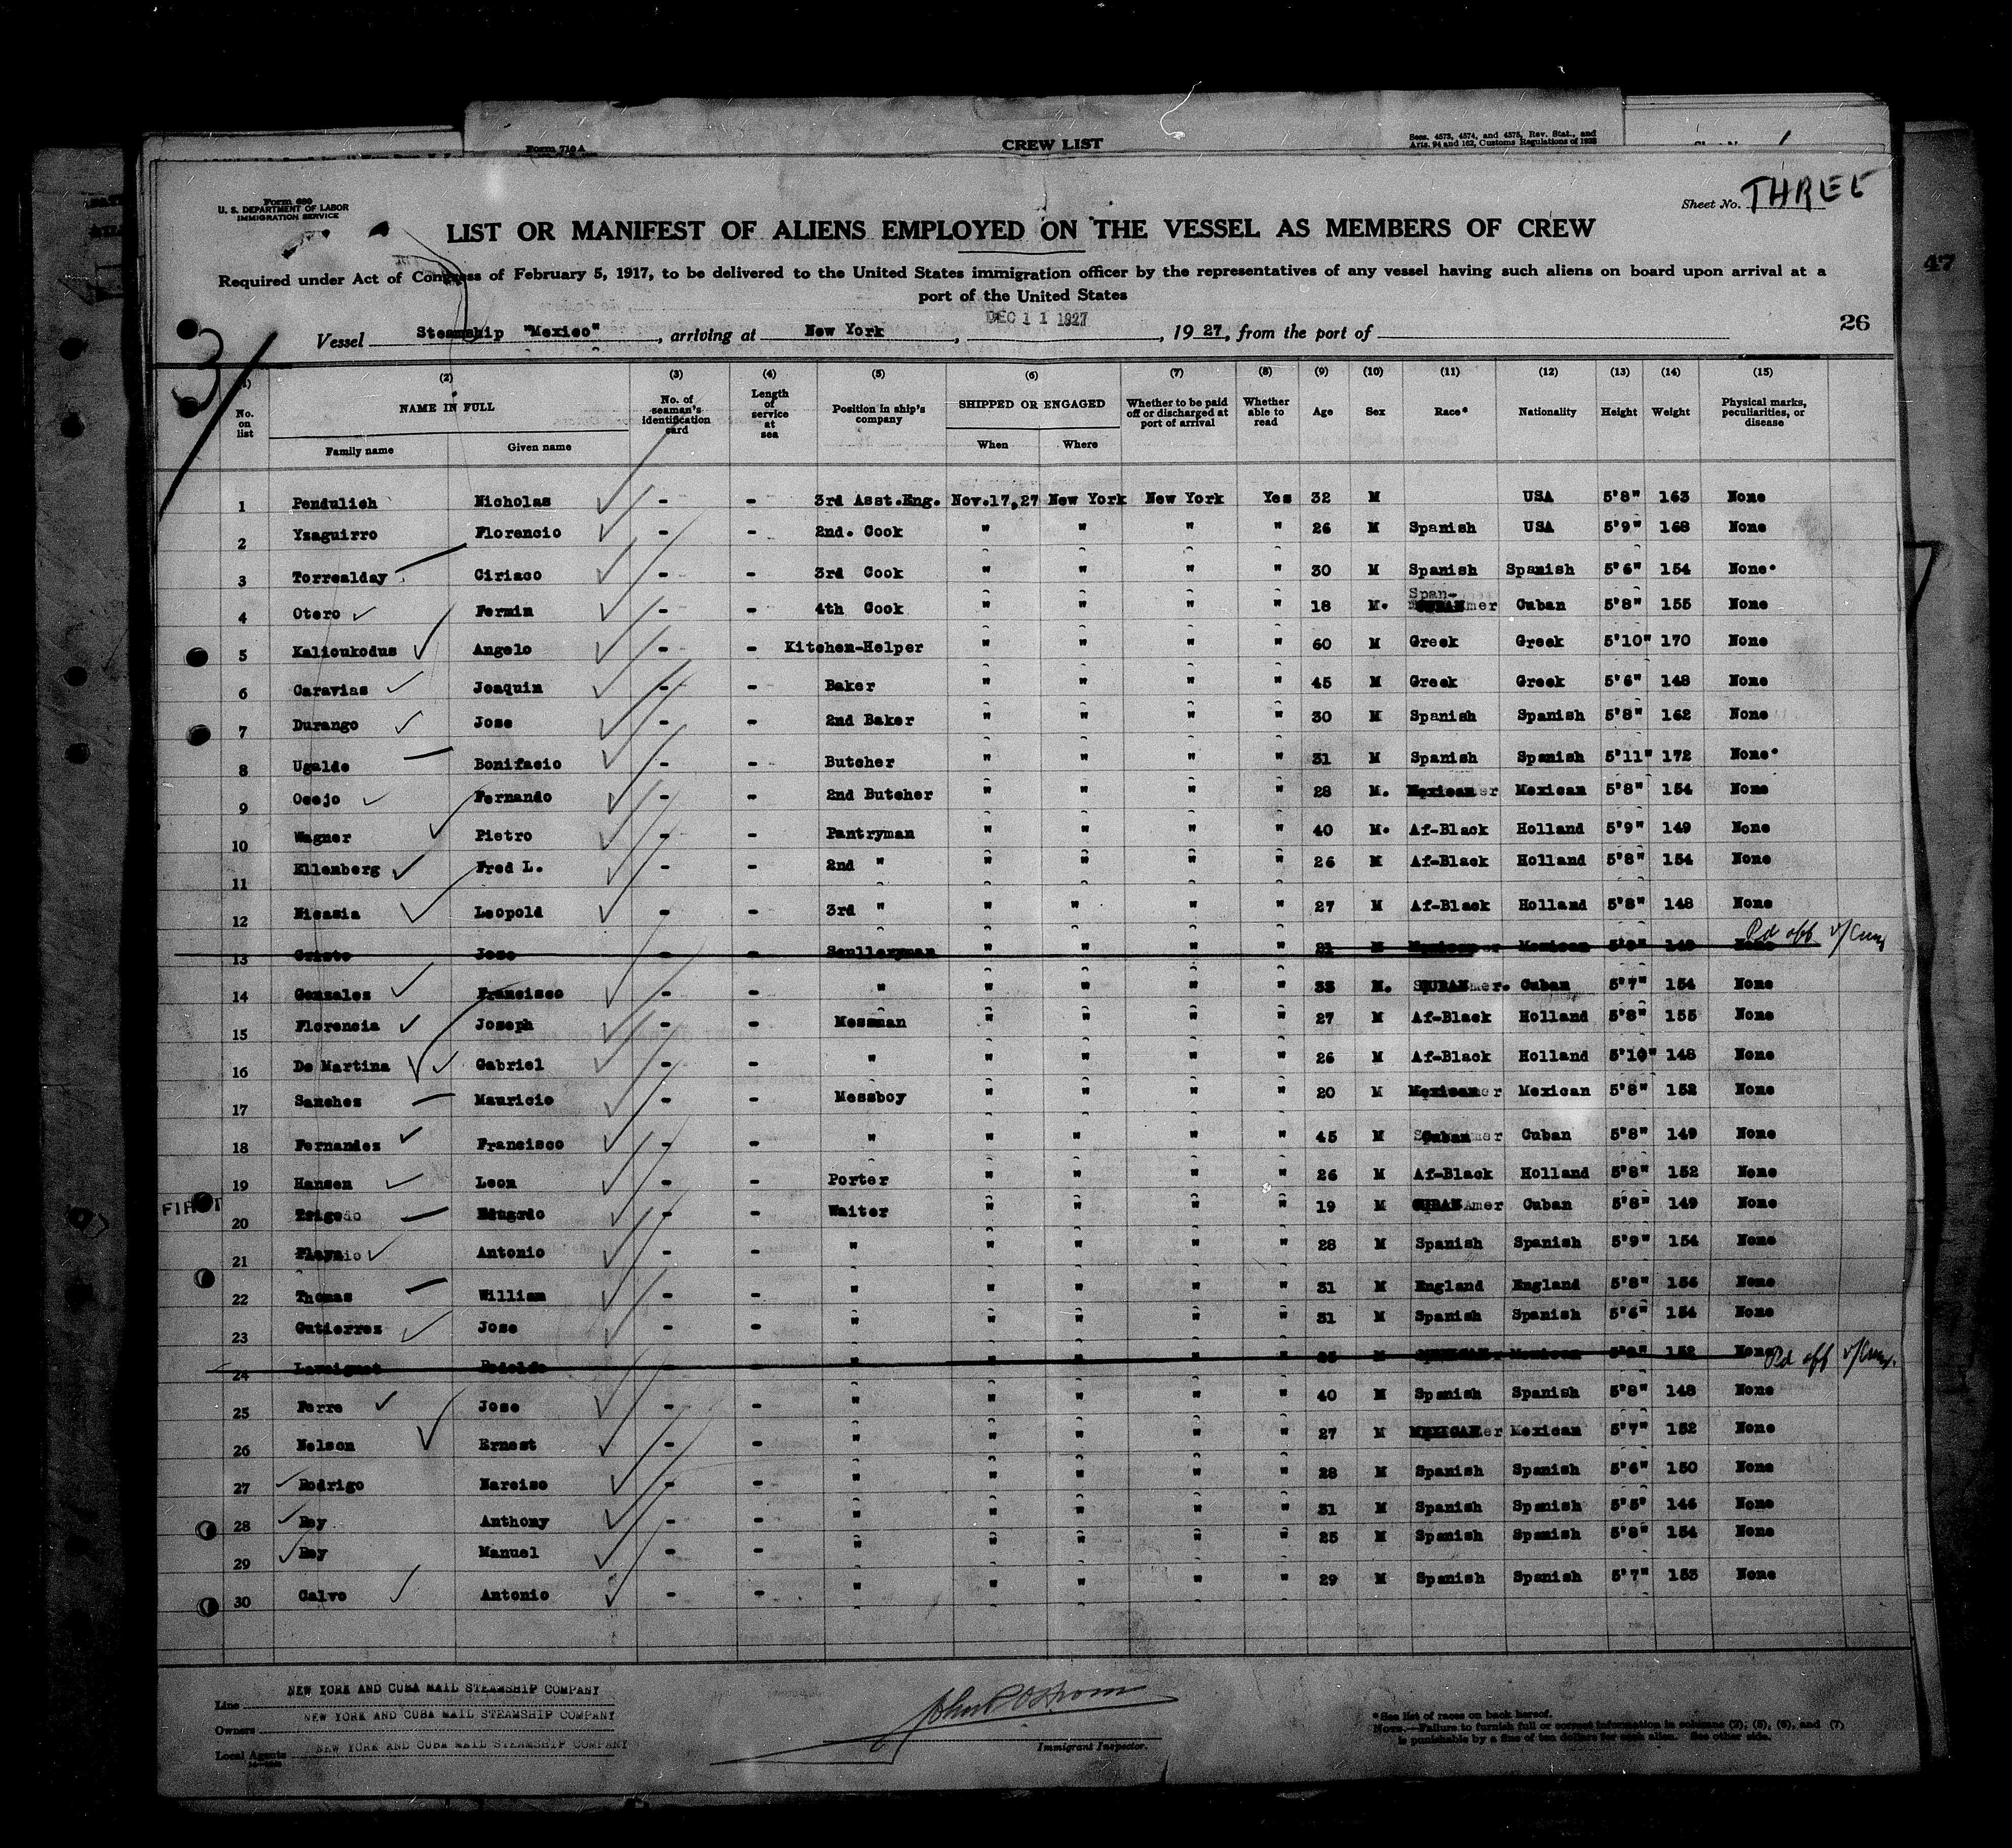 Form 710 A
CREW LIST
Secs. 4573, 4574, and 4575, Rev. Stat., and
Arts. 94 and 162, Customs Regulations of 1923
Form 680
U. S. DEPARTMENT OF LABOR
IMMIGRATION SERVICE
Sheet No. THREE
LIST OR MANIFEST OF ALIENS EMPLOYED ON THE VESSEL AS MEMBERS OF CREW
Required under Act of Congress of February 5, 1917, to be delivered to the United States immigration officer by the representatives of any vessel having such aliens on board upon arrival at a
port of the United States
DEC 11 1927
Vessel Steamship "Mexico", arriving at New York, 1927, from the port of
26
47
3
(1) (2) (3) (4) (5) (6) (7) (8) (9) (10) (11) (12) (13) (14) (15)
No. on list NAME IN FULL Family name Given name No. of seaman's identification card Length of service at sea Position in ship's company SHIPPED OR ENGAGED When Where Whether to be paid off or discharged at port of arrival Whether able to read Age Sex Race* Nationality Height Weight Physical marks, peculiarities, or disease
1 Pendulich Nicholas - - 3rd Asst.Eng. Nov.17,27 New York New York Yes 32 M USA 5'8" 163 None
2 Yzaguirro Florencio - - 2nd. Cook " " " " 26 M Spanish USA 5'9" 168 None
3 Torrealday Ciriaco - - 3rd Cook " " " " 30 M Spanish Spanish 5'6" 154 None
4 Otero Fermin - - 4th Cook " " " " 18 M. Span-Amer Cuban 5'8" 155 None
5 Kalioukodus Angelo - - Kitchen-Helper " " " " 60 M Greek Greek 5'10" 170 None
6 Caravias Joaquin - - Baker " " " " 45 M Greek Greek 5'6" 148 None
7 Durango Jose - - 2nd Baker " " " " 30 M Spanish Spanish 5'8" 162 None
8 Ugalde Bonifacio - - Butcher " " " " 31 M Spanish Spanish 5'11" 172 None
9 Ocejo Fernando - - 2nd Butcher " " " " 28 M. Mexican Mexican 5'8" 154 None
10 Wagner Pietro - - Pantryman " " " " 40 M. Af-Black Holland 5'9" 149 None
11 Ellenberg Fred L. - - 2nd " " " " " 26 M Af-Black Holland 5'8" 154 None
12 Nicasia Leopold - - 3rd " " " " " 27 M Af-Black Holland 5'8" 148 None
13 Criste Jose - - Sculleryman " " " " 21 M Mexican Mexican 5'8" 149 None Pd off
14 Gonzales Francisco - - " " " " " 33 M. CUBAN Cuban 5'7" 154 None
15 Florencia Joseph - - Messman " " " " 27 M Af-Black Holland 5'8" 155 None
16 De Martina Gabriel - - " " " " " 26 M Af-Black Holland 5'10" 148 None
17 Sanches Mauricio - - Messboy " " " " 20 M Mexican Mexican 5'8" 152 None
18 Fernandez Francisco - - " " " " " 45 M Cuban Cuban 5'8" 149 None
19 Hansen Leon - - Porter " " " " 26 M Af-Black Holland 5'8" 152 None
FIRST
20 Trigedo Eduardo - - Waiter " " " " 19 M CUBAN Amer Cuban 5'8" 149 None
21 Antonio - - " " " " " 28 M Spanish Spanish 5'9" 154 None
22 Thomas William - - " " " " " 31 M England England 5'8" 156 None
23 Gutierrez Jose - - " " " " " 31 M Spanish Spanish 5'6" 154 None
24 Rodolfo - - " " " " " M MEXICAN Mexican 152 None Pd off
25 Ferro Jose - - " " " " " 40 M Spanish Spanish 5'8" 148 None
26 Nelson Ernest - - " " " " " 27 M MEXICAN Mexican 5'7" 152 None
27 Rodrigo Narciso - - " " " " " 28 M Spanish Spanish 5'6" 150 None
28 Rey Anthony - - " " " " " 31 M Spanish Spanish 5'5" 146 None
29 Rey Manuel - - " " " " " 25 M Spanish Spanish 5'8" 154 None
30 Calvo Antonio - - " " " " " 29 M Spanish Spanish 5'7" 153 None
Line NEW YORK AND CUBA MAIL STEAMSHIP COMPANY
Owners NEW YORK AND CUBA MAIL STEAMSHIP COMPANY
Local Agents NEW YORK AND CUBA MAIL STEAMSHIP COMPANY
Immigrant Inspector.
* See list of races on back hereof.
NOTE.—Failure to furnish full or correct information in columns (2), (5), (6), and (7)
is punishable by a fine of ten dollars for each alien. See other side.